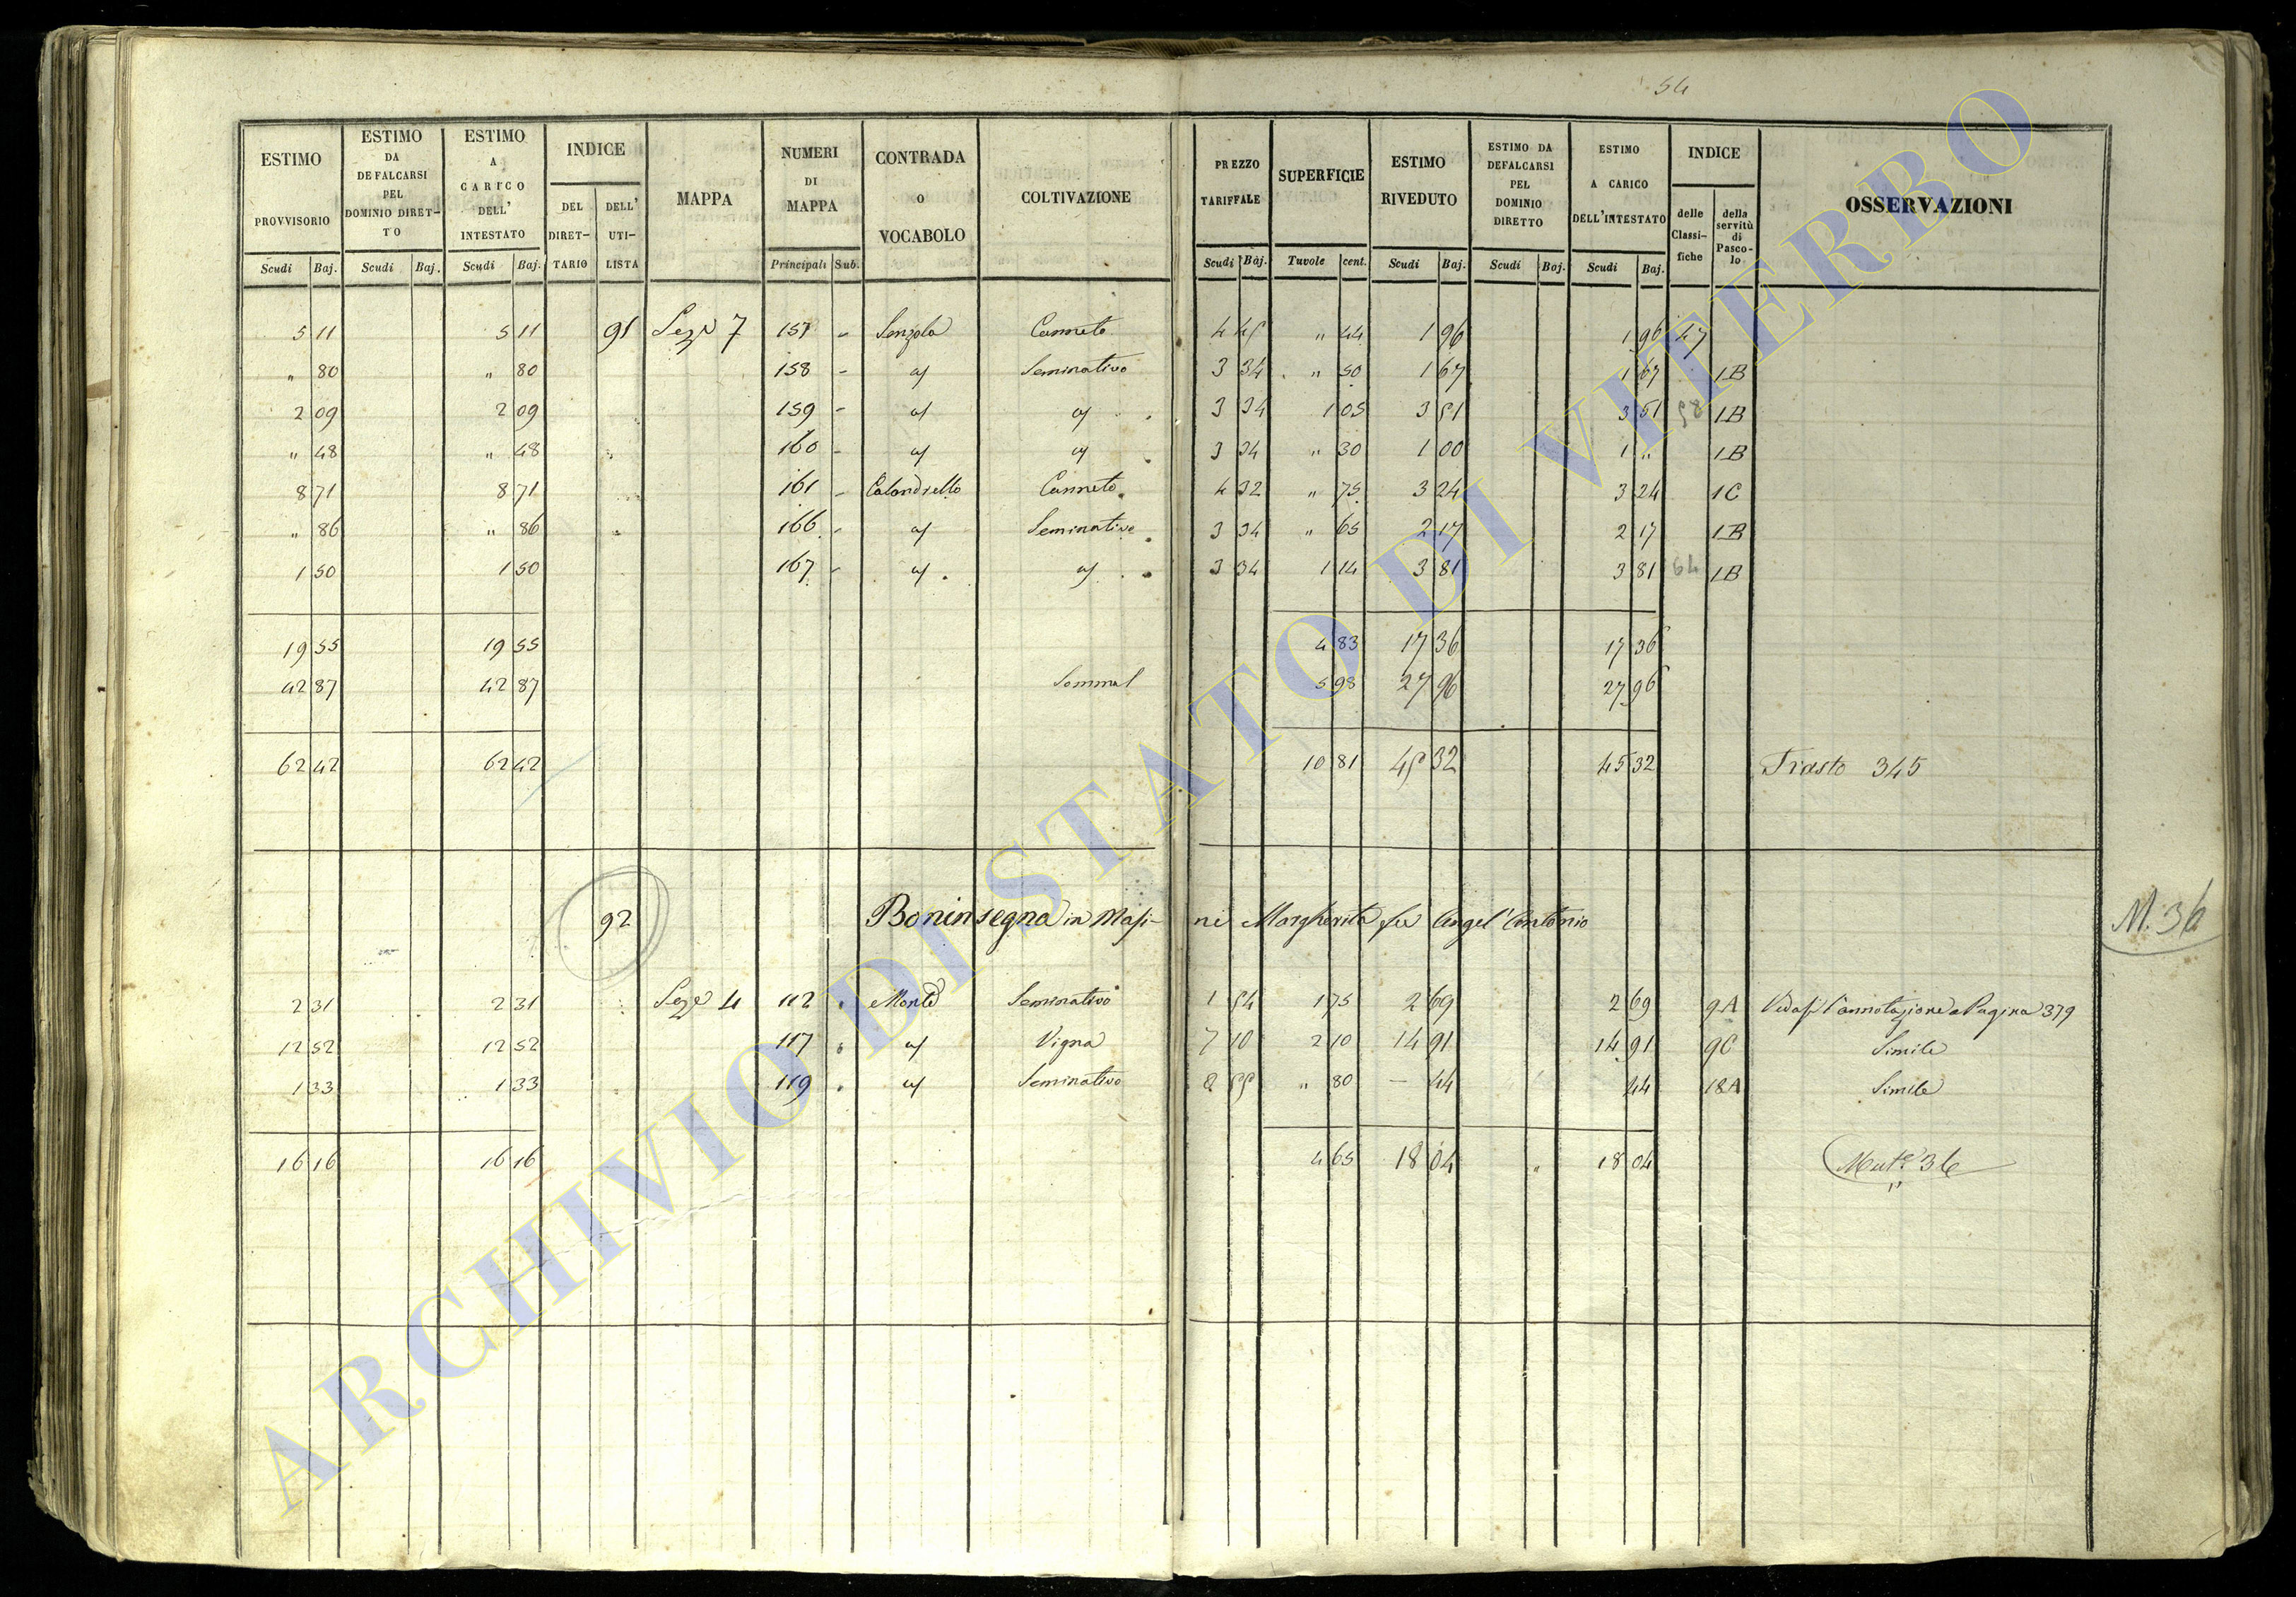 54
ESTIMO PROVVISORIO | ESTIMO DA DEFALCARSI PEL DOMINIO DIRET-TO | ESTIMO A CARICO DELL' INTESTATO | INDICE DEL DIRET-TARIO | DELL' UTI-LISTA | MAPPA | NUMERI DI MAPPA | CONTRADA O VOCABOLO | COLTIVAZIONE | PREZZO TARIFFALE | SUPERFICIE | ESTIMO RIVEDUTO | ESTIMO DA DEFALCARSI PEL DOMINIO DIRETTO | ESTIMO A CARICO DELL'INTESTATO | INDICE delle Classi-fiche | della servitù di Pasco-lo | OSSERVAZIONI
Scudi Baj. | Scudi Baj. | Scudi Baj. | Principali Sub. | Scudi Baj. | Tavole cent. | Scudi Baj. | Scudi Baj. | Scudi Baj.
5 11 | 5 11 | 91 | Seze 7 | 157 | Senzola | Canneto | 4 45 | " 44 | 1 96 | 1 96 | 47
" 80 | " 80 | 158 | a/ | Seminativo | 3 34 | " 50 | 1 67 | 1 67 | 1B
2 09 | 2 09 | 159 | a/ | a/ | 3 34 | 1 05 | 3 51 | 3 51 | 58 | 1B
" 48 | " 48 | 160 | a/ | a/ | 3 34 | " 30 | 1 00 | 1 " | 1B
8 71 | 8 71 | 161 | Calandrello | Canneto | 4 32 | " 75 | 3 24 | 3 24 | 1C
" 86 | " 86 | 166 | a/ | Seminativo | 3 34 | " 65 | 2 17 | 2 17 | 1B
1 50 | 1 50 | 167 | a/ | a/ | 3 34 | 1 14 | 3 81 | 3 81 | 64 | 1B
19 55 | 19 55 | 4 83 | 17 36 | 17 36
42 87 | 42 87 | 5 98 | 27 96 | 27 96
62 42 | 62 42 | 10 81 | 45 32 | 45 32 | Trasto 345
92 | Boninsegna in Masi-ni Margherita fu Angel'Antonio | M. 36
2 31 | 2 31 | Seze 4 | 112 | Monte | Seminativo | 1 54 | 1 75 | 2 69 | 2 69 | 9A | Vedasi l'annotazione a Pagina 379
12 52 | 12 52 | 117 | a/ | Vigna | 7 10 | 2 10 | 14 91 | 14 91 | 9C | Simile
1 33 | 1 33 | 119 | a/ | Seminativo | 55 | " 80 | — 44 | 44 | 18A | Simile
16 16 | 16 16 | 4 65 | 18 04 | " | 18 04 | Mut.e 36
ARCHIVIO DI STATO DI VITERBO